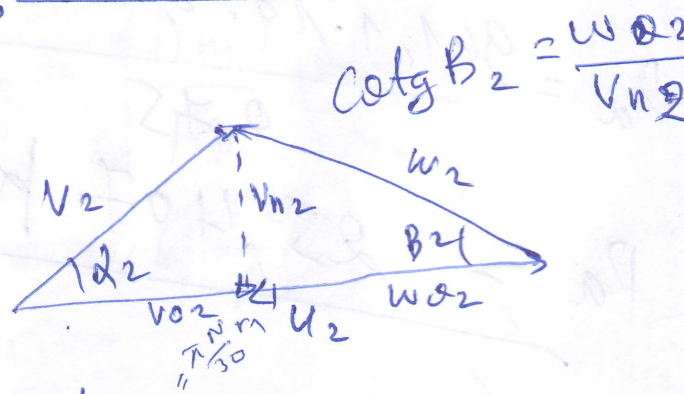 CotgB2 = wθ2 / Vn2
V2
Vn2
w2
α2
B2
Vθ2
U2
wθ2
= πNm/30